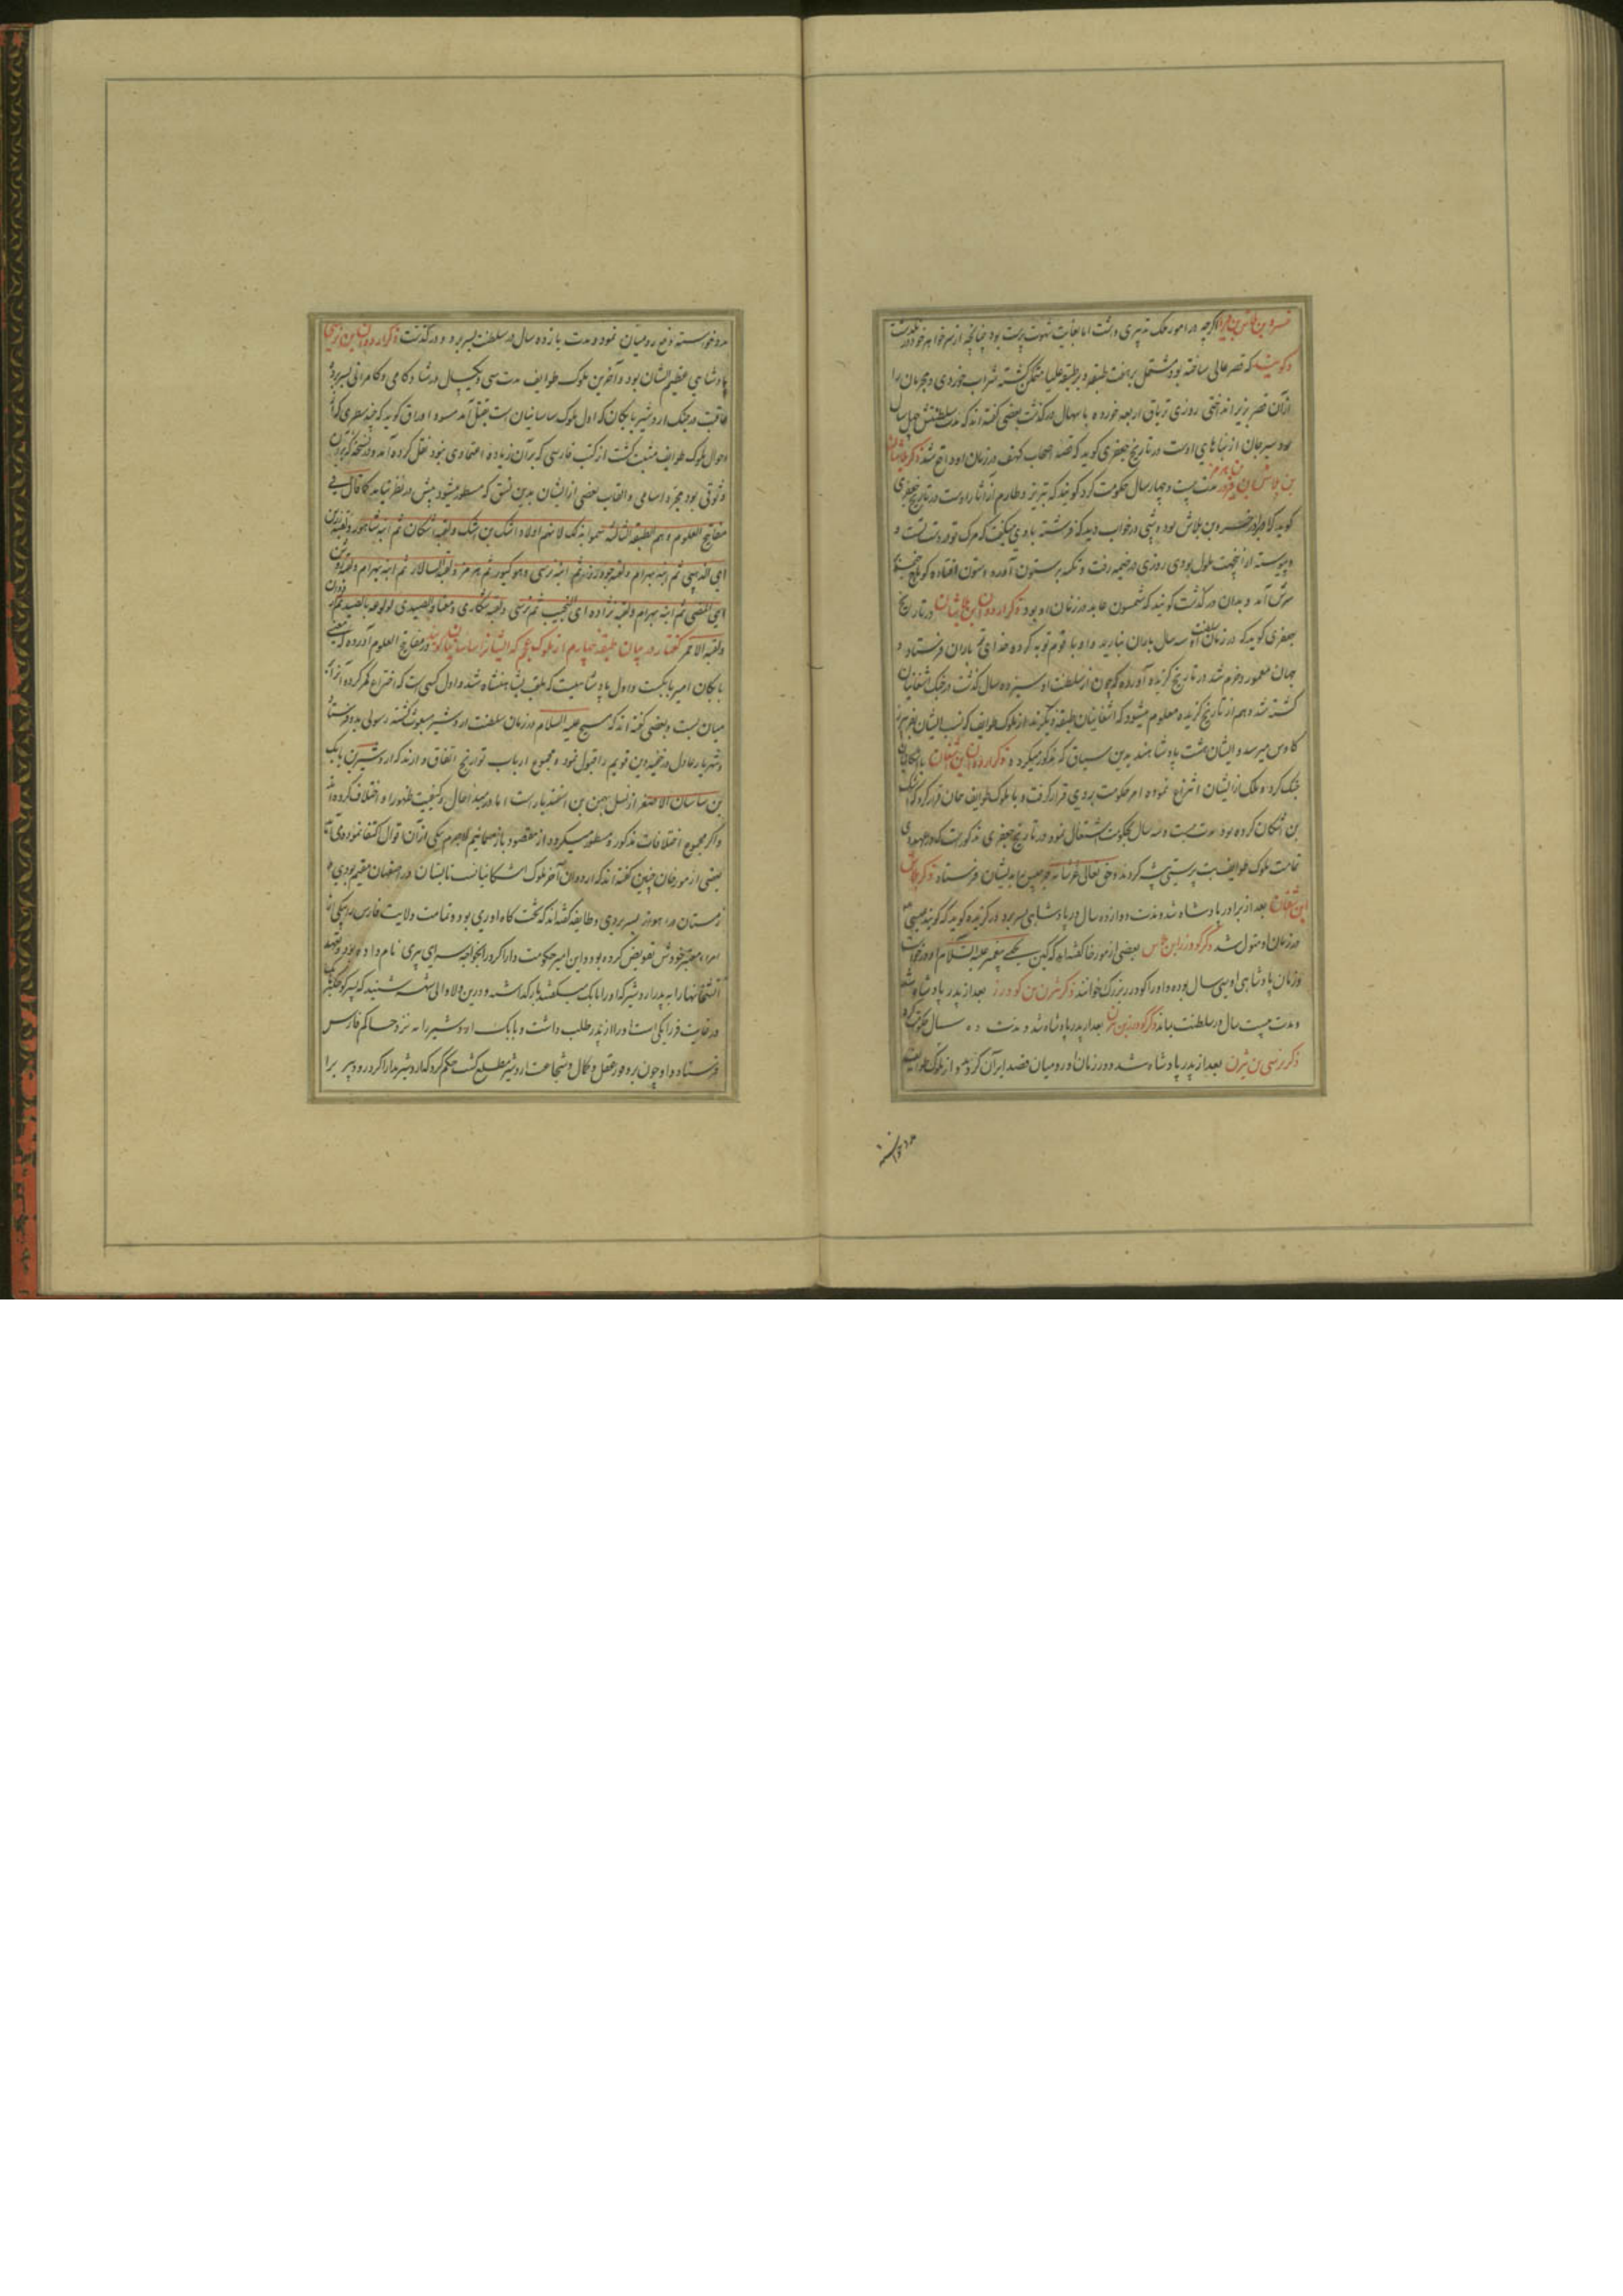 خسرو بن بلاش بن نرسی اگرچه در امور ملک تدبیری داشت اما بغایت شهوت پرست بود چنانچه از سر خواهر خود در نگذشت
و گویند که قصر عالی ساخته بود مشتمل بر هفت طبقه و بر طبقه علیا متمکن گشته شراب خوردی و مجرمان را
از آن قصر بزیر انداختی روزی تریاق اربعه خورده باسهال در گذشت بعضی گفته اند که مدت سلطنتش چهل سال
بود سیرجان از بناهای اوست در تاریخ جعفری گوید که قصه اصحاب کهف در زمان او واقع شد ذکر بلاشان
بن بلاش بن فیروز بن هرمز مدت بیست و چهار سال حکومت کرد گویند که تبریز و طارم از آثار اوست در تاریخ جعفری
گوید که او برادر خسرو بن بلاش بود و شبی در خواب دید که فرشته با وی میگفت که مرگ تو در دست تست و
و پیوسته از آنجهت ملول بودی روزی در خیمه رفت و تکیه بر ستون آورد و ستون افتاده کوپله خیمه
بر سرش آمد و بدان در گذشت گویند که شمسون عابد در زمان او بود ذکر اردوان بن بلاشان در تاریخ
جعفری گوید که در زمان سلطنت او سه سال باران نبارید و او با قوم توبه کرده خدای تع باران فرستاد و
جهان معمور و خرم شد در تاریخ گزیده آورده که چون از سلطنت او سیزده سال گذشت در جنگ اشغانیان
کشته شد و هم از تاریخ گزیده معلوم میشود که اشغانیان طبقه دیگرند از ملوک طوایف که نسب ایشان بفریبرز
کاوس میرسد و ایشان هشت پادشاهند بدین سیاق که مذکور میگردد ذکر اردوان بن اشغان با اشکانیان
جنگ کرد و ملک از ایشان انتزاع نموده امر حکومت بر وی قرار گرفت و با ملوک طوایف همان قرار کرد که اشک
بن اشکان کرده بود مدت بیست و سه سال بحکومت اشتغال نمود در تاریخ جعفری مذکور است که در عهد وی
تمامت ملوک طوایف بت پرستی پیشه کردند و حق تعالی عز شانه جرجیس را بدیشان فرستاد ذکر بلاش
ابن اشغان بعد از برادر پادشاه شد و مدت دوازده سال در پادشاهی بسر برد در گزیده گوید که گویند عیسی ع
در زمان او متولد شد ذکر گودرز بن بلاش بعضی از مورخان گفته اند که کین یحیی پیغمبر علیه السلام او درخواست
و زمان پادشاهی او سی سال بوده و او را گودرز بزرگ خوانند ذکر بیژن بن گودرز بعد از پدر پادشاه شد
و مدت بیست سال در سلطنت بماند ذکر گودرز بن بیژن بعد از پدر پادشاه شد و مدت ده سال حکومت کرد
ذکر نرسی بن بیژن بعد از پدر پادشاه شد و در زمان او رومیان قصد ایران کردند و از ملوک طوایف
مدد خواسته
مدد خواسته دفع رومیان نمود و مدت یازده سال در سلطنت بسر برد و در گذشت ذکر اردوان بن نرسی
پادشاهی عظیم الشان بود و آخرین ملوک طوایف مدت سی و یکسال در شادکامی و کامرانی بسر برد
عاقبت در جنگ اردشیر بابکان که اول ملوک ساسانیان است بقتل آمد مسود اوراق گوید که چند سطری که از
احوال ملوک طوایف مثبت گشت از کتب فارسی که بر آن زیاده اعتمادی نبود نقل کرده آمد و در نسخه که بر آن
وثوقی بود بجز اسامی و القاب بعضی از ایشان بدین نسق که مسطور میشود بیش در نظر نیامد کما قال فی
مفاتیح العلوم و هم الطبقة الثالثة سموا بذلک لانهم اولاد اشک بن اشکان و لقبه اشکان ثم ابنه شاهپور و لقبه زرین
ای الذهبی ثم ابنه بهرام و لقبه جودرز ثم ابنه نرسی و هو کیور ثم هرمز و لقبه السالار ثم ابنه بهرام و لقبه روشن
ای المضی ثم ابنه بهرام و لقبه نژاده ای النجیب ثم نرسی و لقبه شکاری و معناه الصیدی لولوعه بالصید ثم اردوان
و لقبه الاحمر گفتار در بیان طبقه چهارم از ملوک عجم که ایشانرا ساسانیان گویند در مفاتیح العلوم آورده که معنی
بابکان امیر بابکست و اول پادشاهیست که ملقب بشاهنشاه شد و اول کسی است که اختراع کمر کرده آنرا بر
میان بست و بعضی گفته اند که مسیح علیه السلام در زمان سلطنت اردشیر مبعوث گشته رسولی بدو فرستاد
و شهریار عادل در خفیه دین قویم را قبول نمود و مجموع ارباب تواریخ اتفاق دارند که اردشیر بن بابک
بن ساسان الاصغر از نسل بهمن بن اسفندیار است اما در مبداء حال و کیفیت ظهور او اختلاف کرده اند
و اگر مجموع اختلافات مذکور و مسطور میگردد از مقصود باز میمانیم لاجرم بیکی از آن اقوال اکتفا نموده می آید
بعضی از مورخان چنین گفته اند که اردوان آخر ملوک اشکانیانست تابستان در اصفهان مقیم بودی و
زمستان در اهواز بسر بردی و طایفه گفته اند که تخت گاه او ری بود و تمامت ولایت فارس را بیکی از
امراء معتبر خودش تفویض کرده بود و این امیر حکومت دارابگرد را بخواجه سرای پیری نام داده بود و تعهد
آتشخانها را به پدر اردشیر که او را بابک میگفتند باز گذاشته و درین ولا والی شنید که پسر کوچکتر
در غایت فرزانگی است او را از پدر طلب داشت و بابک اردشیر را نزد حاکم فارس
فرستاد و او چون بر وفور عقل و کمال و شجاعت اردشیر مطلع گشت حکم کرد که اردشیر بدارابگرد رود و پیر را